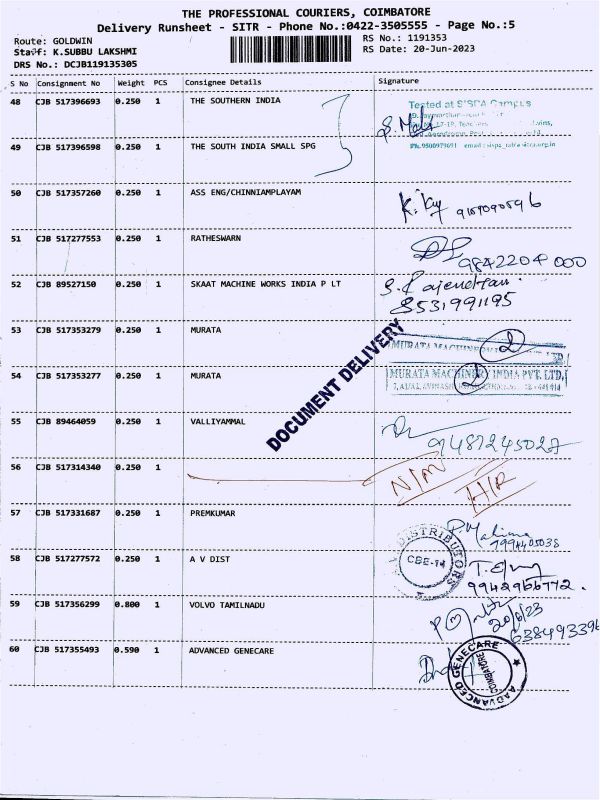 THE PROFESSIONAL COURIERS, COIMBATORE
Delivery Runsheet - SITR - Phone No.:0422-3505555 - Page No.:5
Route: GOLDWIN
RS No.: 1191353
Staff: K.SUBBU LAKSHMI
RS Date: 20-Jun-2023
DRS No.: DCJB119135305
S No Consignment No Weight PCS Consignee Details Signature
48 CJB 517396693 0.250 1 THE SOUTHERN INDIA
Tested at SISPA Campus
49 CJB 517396598 0.250 1 THE SOUTH INDIA SMALL SPG
Ph.9500979691
50 CJB 517357260 0.250 1 ASS ENG/CHINNIAMPLAYAM
51 CJB 517277553 0.250 1 RATHESWARN
9842204000
52 CJB 89527150 0.250 1 SKAAT MACHINE WORKS INDIA P LT
8531991195
53 CJB 517353279 0.250 1 MURATA
2
54 CJB 517353277 0.250 1 MURATA
MURATA MACHINERY INDIA PVT. LTD.
2
DOCUMENT DELIVERY
55 CJB 89464059 0.250 1 VALLIYAMMAL
56 CJB 517314340 0.250 1
N/M H/R
57 CJB 517331687 0.250 1 PREMKUMAR
58 CJB 517277572 0.250 1 A V DIST
A.V. DISTRIBUTORS
CBE-14
59 CJB 517356299 0.800 1 VOLVO TAMILNADU
20/6/23
60 CJB 517355493 0.590 1 ADVANCED GENECARE
AADVANCED GENECARE
COIMBATORE